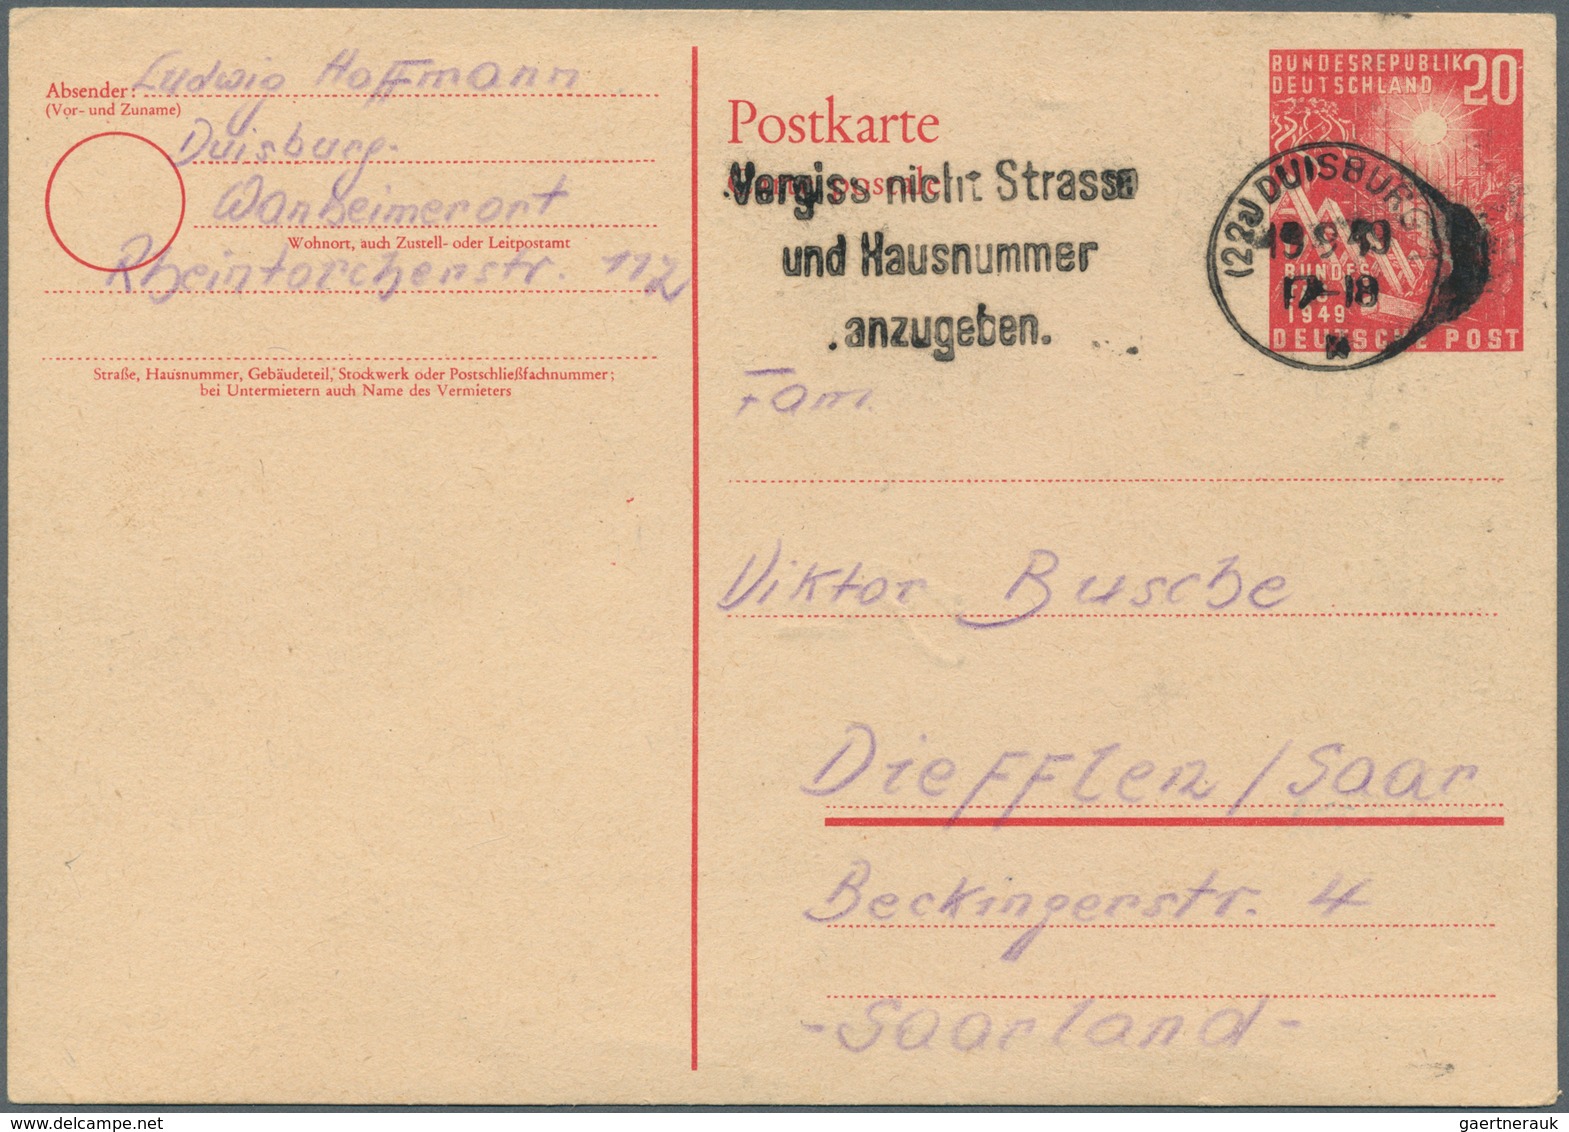 Absender: Ludwig Hoffmann
(Vor- und Zuname)
Duisburg.
Wanheimerort
Wohnort, auch Zustell- oder Leitpostamt
Rheintorchenstr. 112
Straße, Hausnummer, Gebäudeteil, Stockwerk oder Postschließfachnummer;
bei Untermietern auch Name des Vermieters
Postkarte
Carte postale
Vergiss nicht Strasse
und Hausnummer
anzugeben.
BUNDESREPUBLIK 20
DEUTSCHLAND
(22a) DUISBURG
19.9.49
17-18
BUNDES
1949
DEUTSCHE POST
Fam.
Viktor Busche
Diefflen / Saar
Beckingerstr. 4
- Saarland -
gaertnerauk